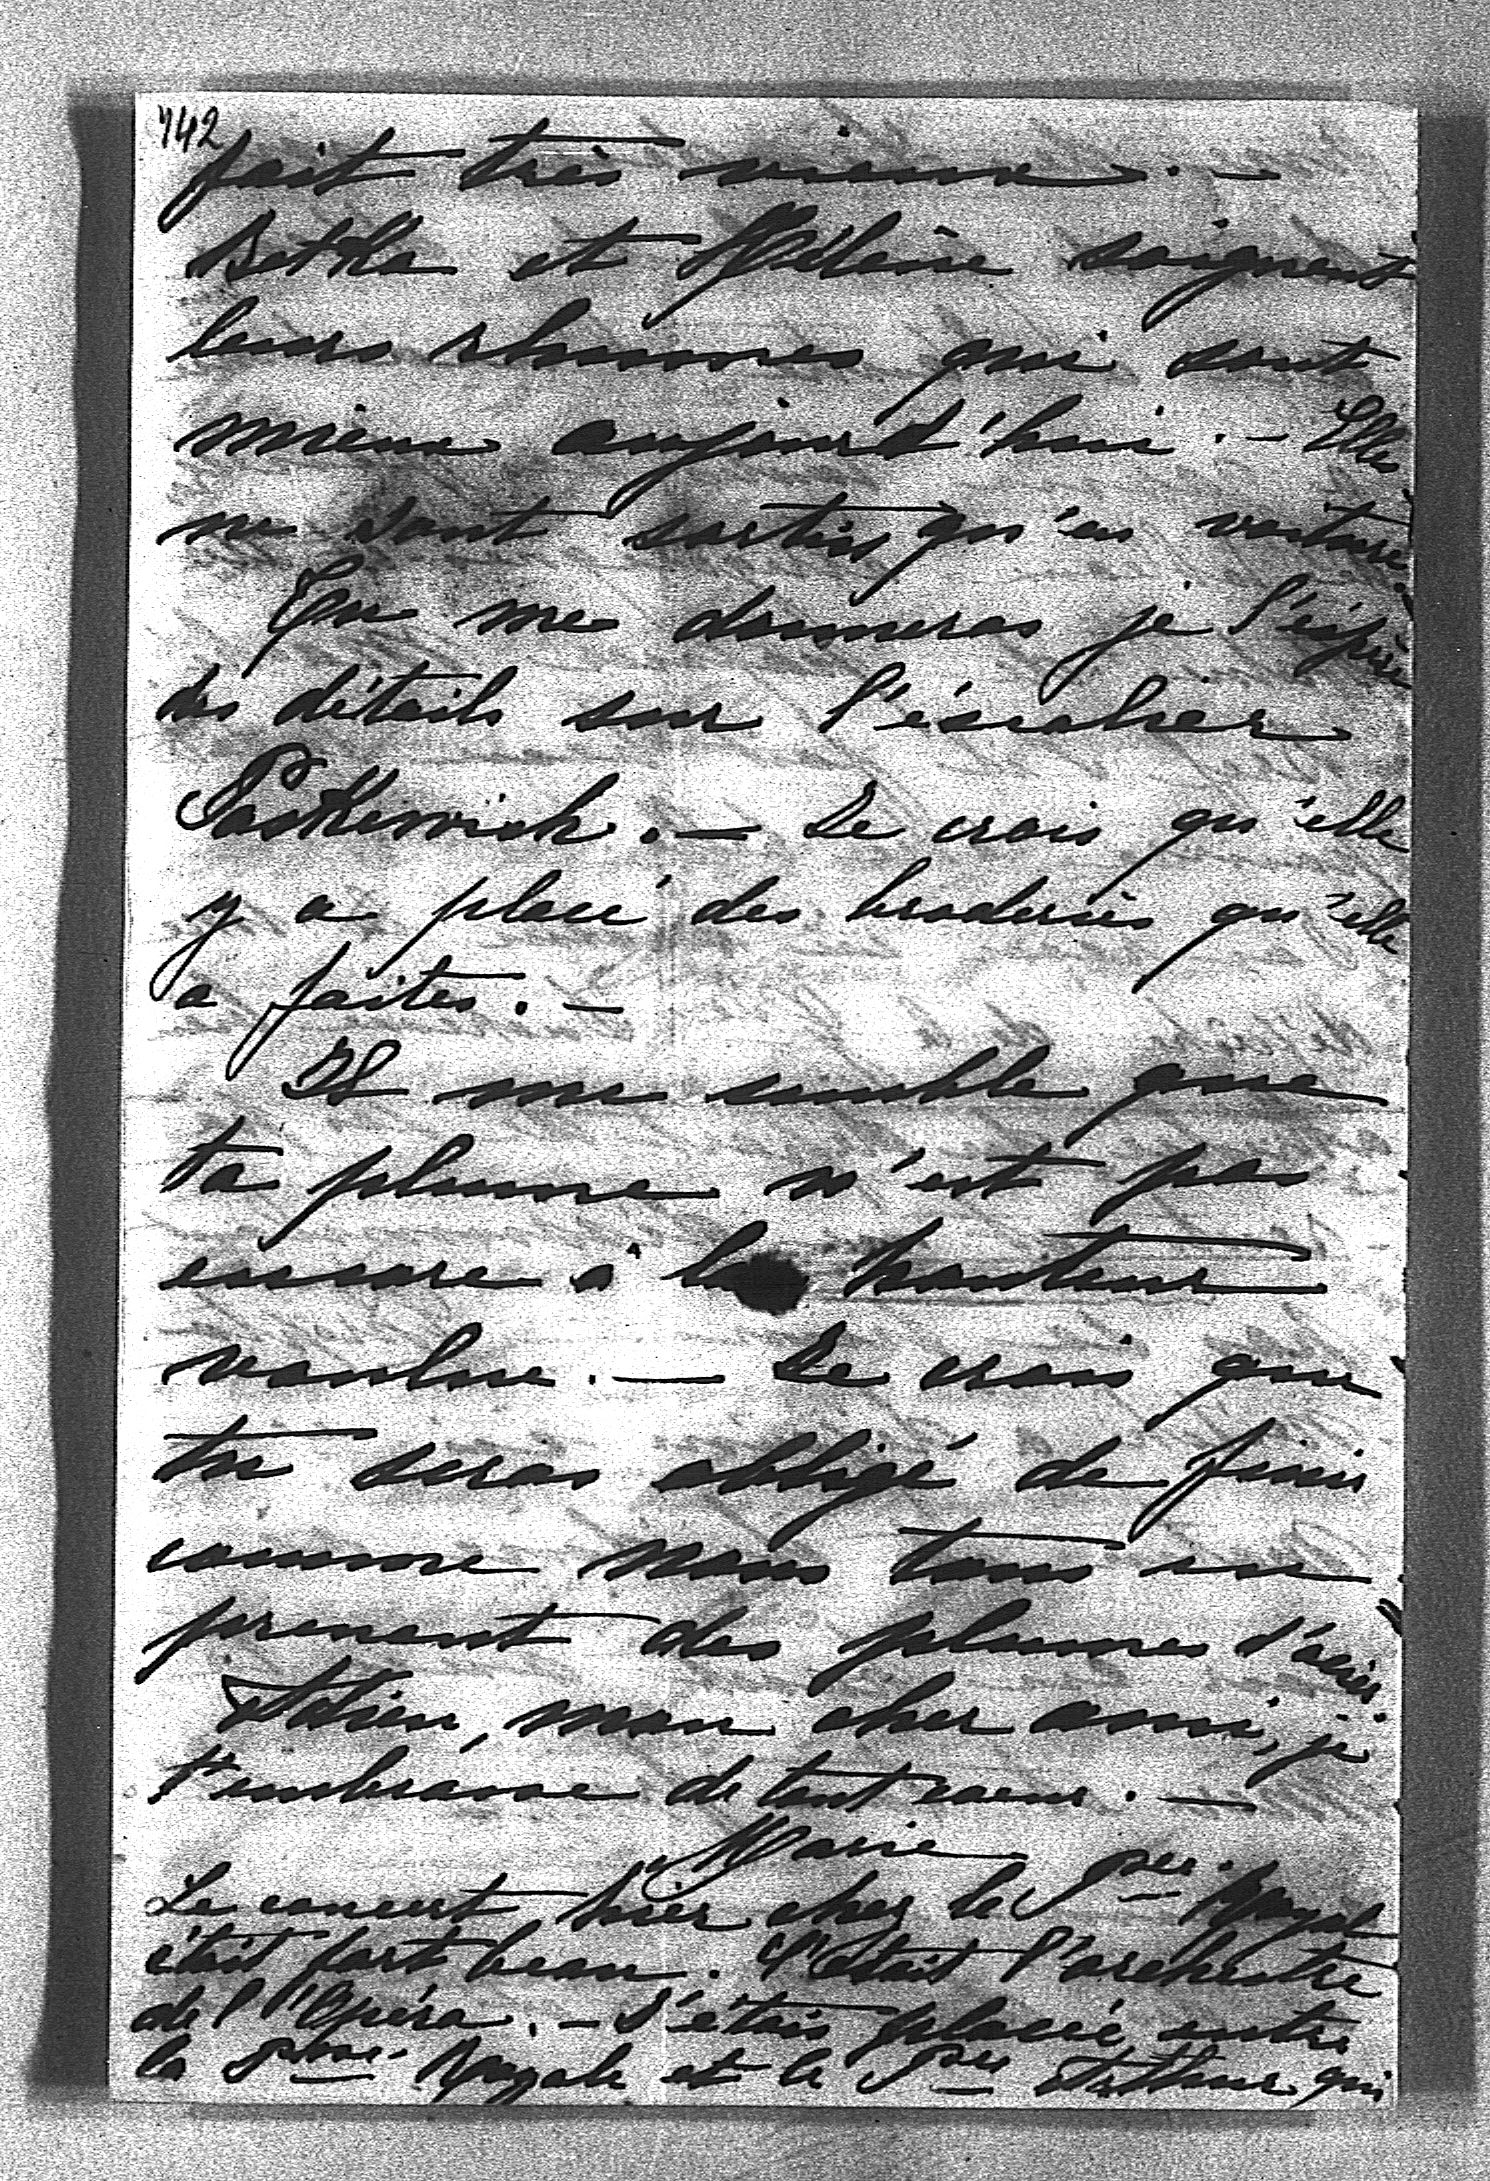 742
fait très vieux. —
Betka et Hélène soignent
leurs rhumes qui sont
mieux aujourd'hui. — Elles
ne sont sorties qu'en voiture.
Tu me donneras je l'éspère
des détails sur l'éscalier
Paskewich. — Je crois qu'elle
y a placé des broderies qu'elle
a faites. —
Il me semble que
ta plume n'est pas
encore à la hauteur
voulue. — Je crois que
tu seras obligé de finir
comme nous tous en
prenant des plumes d'acier.
Adieu, mon cher ami, je
t'embrasse de tout coeur. —
Marie
Le concert hier chez le Pce. Royal
était fort beau. C'était l'orchestre
de l'Opéra. — J'étais placée entre
la Psse. Royale et le Pce Arthur qui